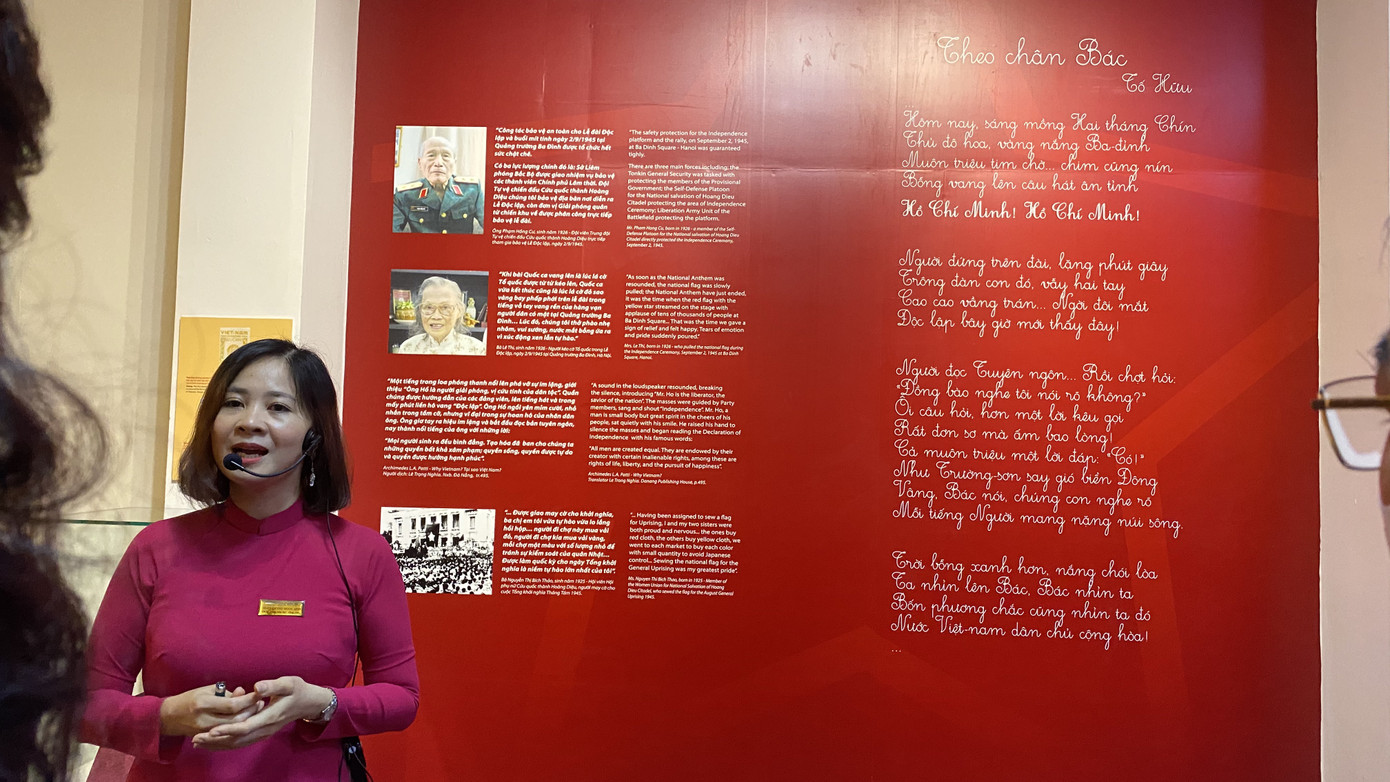 "Công tác bảo vệ an toàn cho Lễ đài Độc
lập và buổi mít tinh ngày 2/9/1945 tại
Quảng trường Ba Đình được tổ chức hết
sức chặt chẽ.
Có ba lực lượng chính đó là: Sở Liêm
phóng Bắc Bộ được giao nhiệm vụ bảo vệ
các thành viên Chính phủ Lâm thời. Đội
Tự vệ chiến đấu Cứu quốc thành Hoàng
Diệu chúng tôi bảo vệ địa bàn nơi diễn ra
Lễ Độc lập, còn đơn vị Giải phóng quân
từ chiến khu về được phân công trực tiếp
bảo vệ lễ đài.
Ông Phạm Hồng Cư, sinh năm 1926 - Đội viên Trung đội
Tự vệ chiến đấu Cứu quốc thành Hoàng Diệu trực tiếp
tham gia bảo vệ Lễ Độc lập, ngày 2/9/1945.
"The safety protection for the Independence
platform and the rally, on September 2, 1945,
at Ba Dinh Square - Hanoi was guaranteed
tighly.
There are three main forces including, the
Tonkin General Security was tasked with
protecting the members of the Provisional
Government; the Self-Defense Platoon
for the National salvation of Hoang Dieu
Citadel protecting the area of Independence
Ceremony; Liberation Army Unit of the
Battlefield protecting the platform.
Mr. Pham Hong Cu, born in 1926 - a member of the Self-
Defense Platoon for the National salvation of Hoang Dieu
Citadel directly protected the Independence Ceremony,
September 2, 1945.
"Khi bài Quốc ca vang lên là lúc lá cờ
Tổ quốc được từ từ kéo lên, Quốc ca
vừa kết thúc cũng là lúc lá cờ đỏ sao
vàng bay phấp phới trên lễ đài trong
tiếng vỗ tay vang rền của hàng vạn
người dân có mặt tại Quảng trường Ba
Đình... Lúc đó, chúng tôi thở phào nhẹ
nhõm, vui sướng, nước mắt bỗng ứa ra
vì xúc động xen lẫn tự hào".
Bà Lê Thi, sinh năm 1926 - Người kéo cờ Tổ quốc trong Lễ
Độc lập, ngày 2/9/1945 tại Quảng trường Ba Đình, Hà Nội.
"As soon as the National Anthem was
resounded, the national flag was slowly
pulled; the National Anthem have just ended,
it was the time when the red flag with the
yellow star streamed on the stage with
applause of tens of thousands of people at
Ba Dinh Square... That was the time we gave a
sign of relief and felt happy. Tears of emotion
and pride suddenly poured."
Mrs. Le Thi, born in 1926 - who pulled the national flag during
the Independence Ceremony, September 2, 1945 at Ba Dinh
Square, Hanoi.
"Một tiếng trong loa phóng thanh nổi lên phá vỡ sự im lặng, giới
thiệu "Ông Hồ là người giải phóng, vị cứu tinh của dân tộc". Quần
chúng được hướng dẫn của các đảng viên, lên tiếng hát và trong
mấy phút liền hô vang "Độc lập". Ông Hồ ngồi yên mỉm cười, nhỏ
nhắn trong tầm cỡ, nhưng vĩ đại trong sự hoan hô của nhân dân
ông. Ông giơ tay ra hiệu im lặng và bắt đầu đọc bản tuyên ngôn,
nay thành nổi tiếng của ông với những lời:
"Mọi người sinh ra đều bình đẳng. Tạo hóa đã ban cho chúng ta
những quyền bất khả xâm phạm; quyền sống, quyền được tự do
và quyền được hưởng hạnh phúc".
Archimedes L.A. Patti - Why Vietnam? Tại sao Việt Nam?
Người dịch: Lê Trọng Nghĩa. Nxb. Đà Nẵng, tr.495.
"A sound in the loudspeaker resounded, breaking
the silence, introducing "Mr. Ho is the liberator, the
savior of the nation". The masses were guided by Party
members, sang and shout "Independence". Mr. Ho, a
man is small body but great spirit in the cheers of his
people, sat quietly with his smile. He raised his hand to
silence the masses and began reading the Declaration of
Independence with his famous words:
"All men are created equal. They are endowed by their
creator with certain inalienable rights, among these are
rights of life, liberty, and the pursuit of happiness".
Archimedes L.A. Patti - Why Vietnam?
Translator Le Trong Nghia. Danang Publishing House, p.495.
"... Được giao may cờ cho khởi nghĩa,
ba chị em tôi vừa tự hào vừa lo lắng
hồi hộp... người đi chợ này mua vải
đỏ, người đi chợ kia mua vải vàng,
mỗi chợ một màu với số lượng nhỏ để
tránh sự kiểm soát của quân Nhật...
Được làm quốc kỳ cho ngày Tổng khởi
nghĩa là niềm tự hào lớn nhất của tôi".
Bà Nguyễn Thị Bích Thảo, sinh năm 1925 - Hội viên Hội
phụ nữ Cứu quốc thành Hoàng Diệu, người may cờ cho
cuộc Tổng khởi nghĩa Tháng Tám 1945.
"... Having been assigned to sew a flag
for Uprising, I and my two sisters were
both proud and nervous... the ones buy
red cloth, the others buy yellow cloth, we
went to each market to buy each color
with small quantity to avoid Japanese
control... Sewing the national flag for the
General Uprising was my greatest pride".
Ms. Nguyen Thi Bich Thao, born in 1925 - Member of
the Women Union for National Salvation of Hoang
Dieu Citadel, who sewed the flag for the August General
Uprising 1945.
Theo chân Bác
Tố Hữu
Hôm nay, sáng mồng Hai tháng Chín
Thủ đô hoa, vàng nắng Ba-đình
Muôn triệu tim chờ... chim cũng nín
Bỗng vang lên câu hát ân tình
Hồ Chí Minh! Hồ Chí Minh!
Người đứng trên đài, lặng phút giây
Trông đàn con đó, vẫy hai tay
Cao cao vầng trán... Ngời đôi mắt
Độc lập bây giờ mới thấy đây!
Người đọc Tuyên ngôn... Rồi chợt hỏi:
"Đồng bào nghe tôi nói rõ không?"
Ôi câu hỏi, hơn một lời kêu gọi
Rất đơn sơ mà ấm bao lòng!
Cả muôn triệu một lời đáp: "Có!"
Như Trường-sơn say gió biển Đông
Vâng, Bác nói, chúng con nghe rõ
Mỗi tiếng Người mang nặng núi sông.
Trời bỗng xanh hơn, nắng chói lòa
Ta nhìn lên Bác, Bác nhìn ta
Bốn phương chắc cũng nhìn ta đó
Nước Việt-nam dân chủ cộng hòa!
...